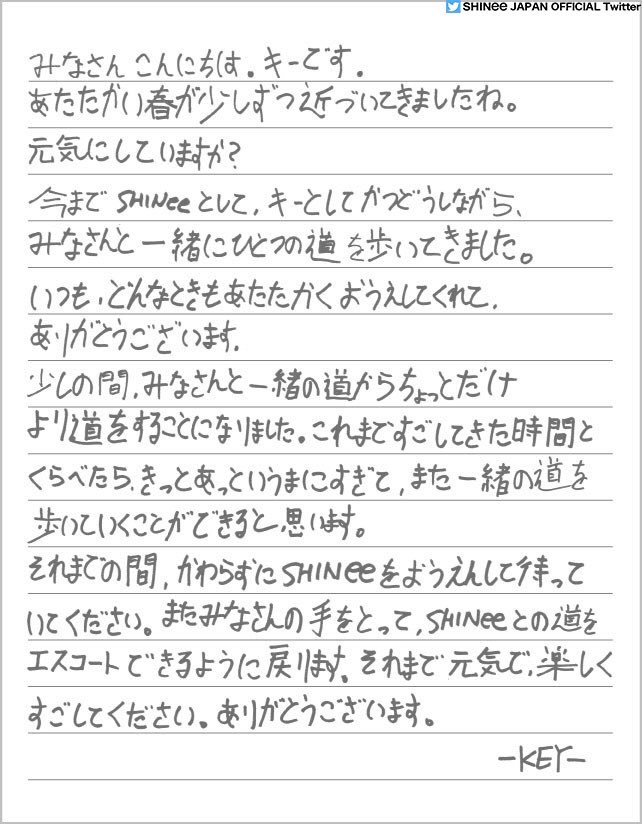 SHINee JAPAN OFFICIAL Twitter
みなさん こんにちは。キーです。
あたたかい春が少しずつ近づいてきましたね。
元気にしていますか?
今まで SHINee として、キーとしてかつどうしながら、
みなさんと一緒にひとつの道を歩いてきました。
いつも、どんなときもあたたかくおうえしてくれて、
ありがとうございます。
少しの間、みなさんと一緒の道からちょっとだけ
より道をすることになりました。これまですごしてきた時間と
くらべたら、きっとあっというまにすぎて、また一緒の道を
歩いていくことができると思います。
それまでの間、かわらずにSHINeeをようえんして待って
いてください。またみなさんの手をとって、SHINeeとの道を
エスコートできるように戻ります。それまで元気で、楽しく
すごしてください。ありがとうございます。
-KEY-